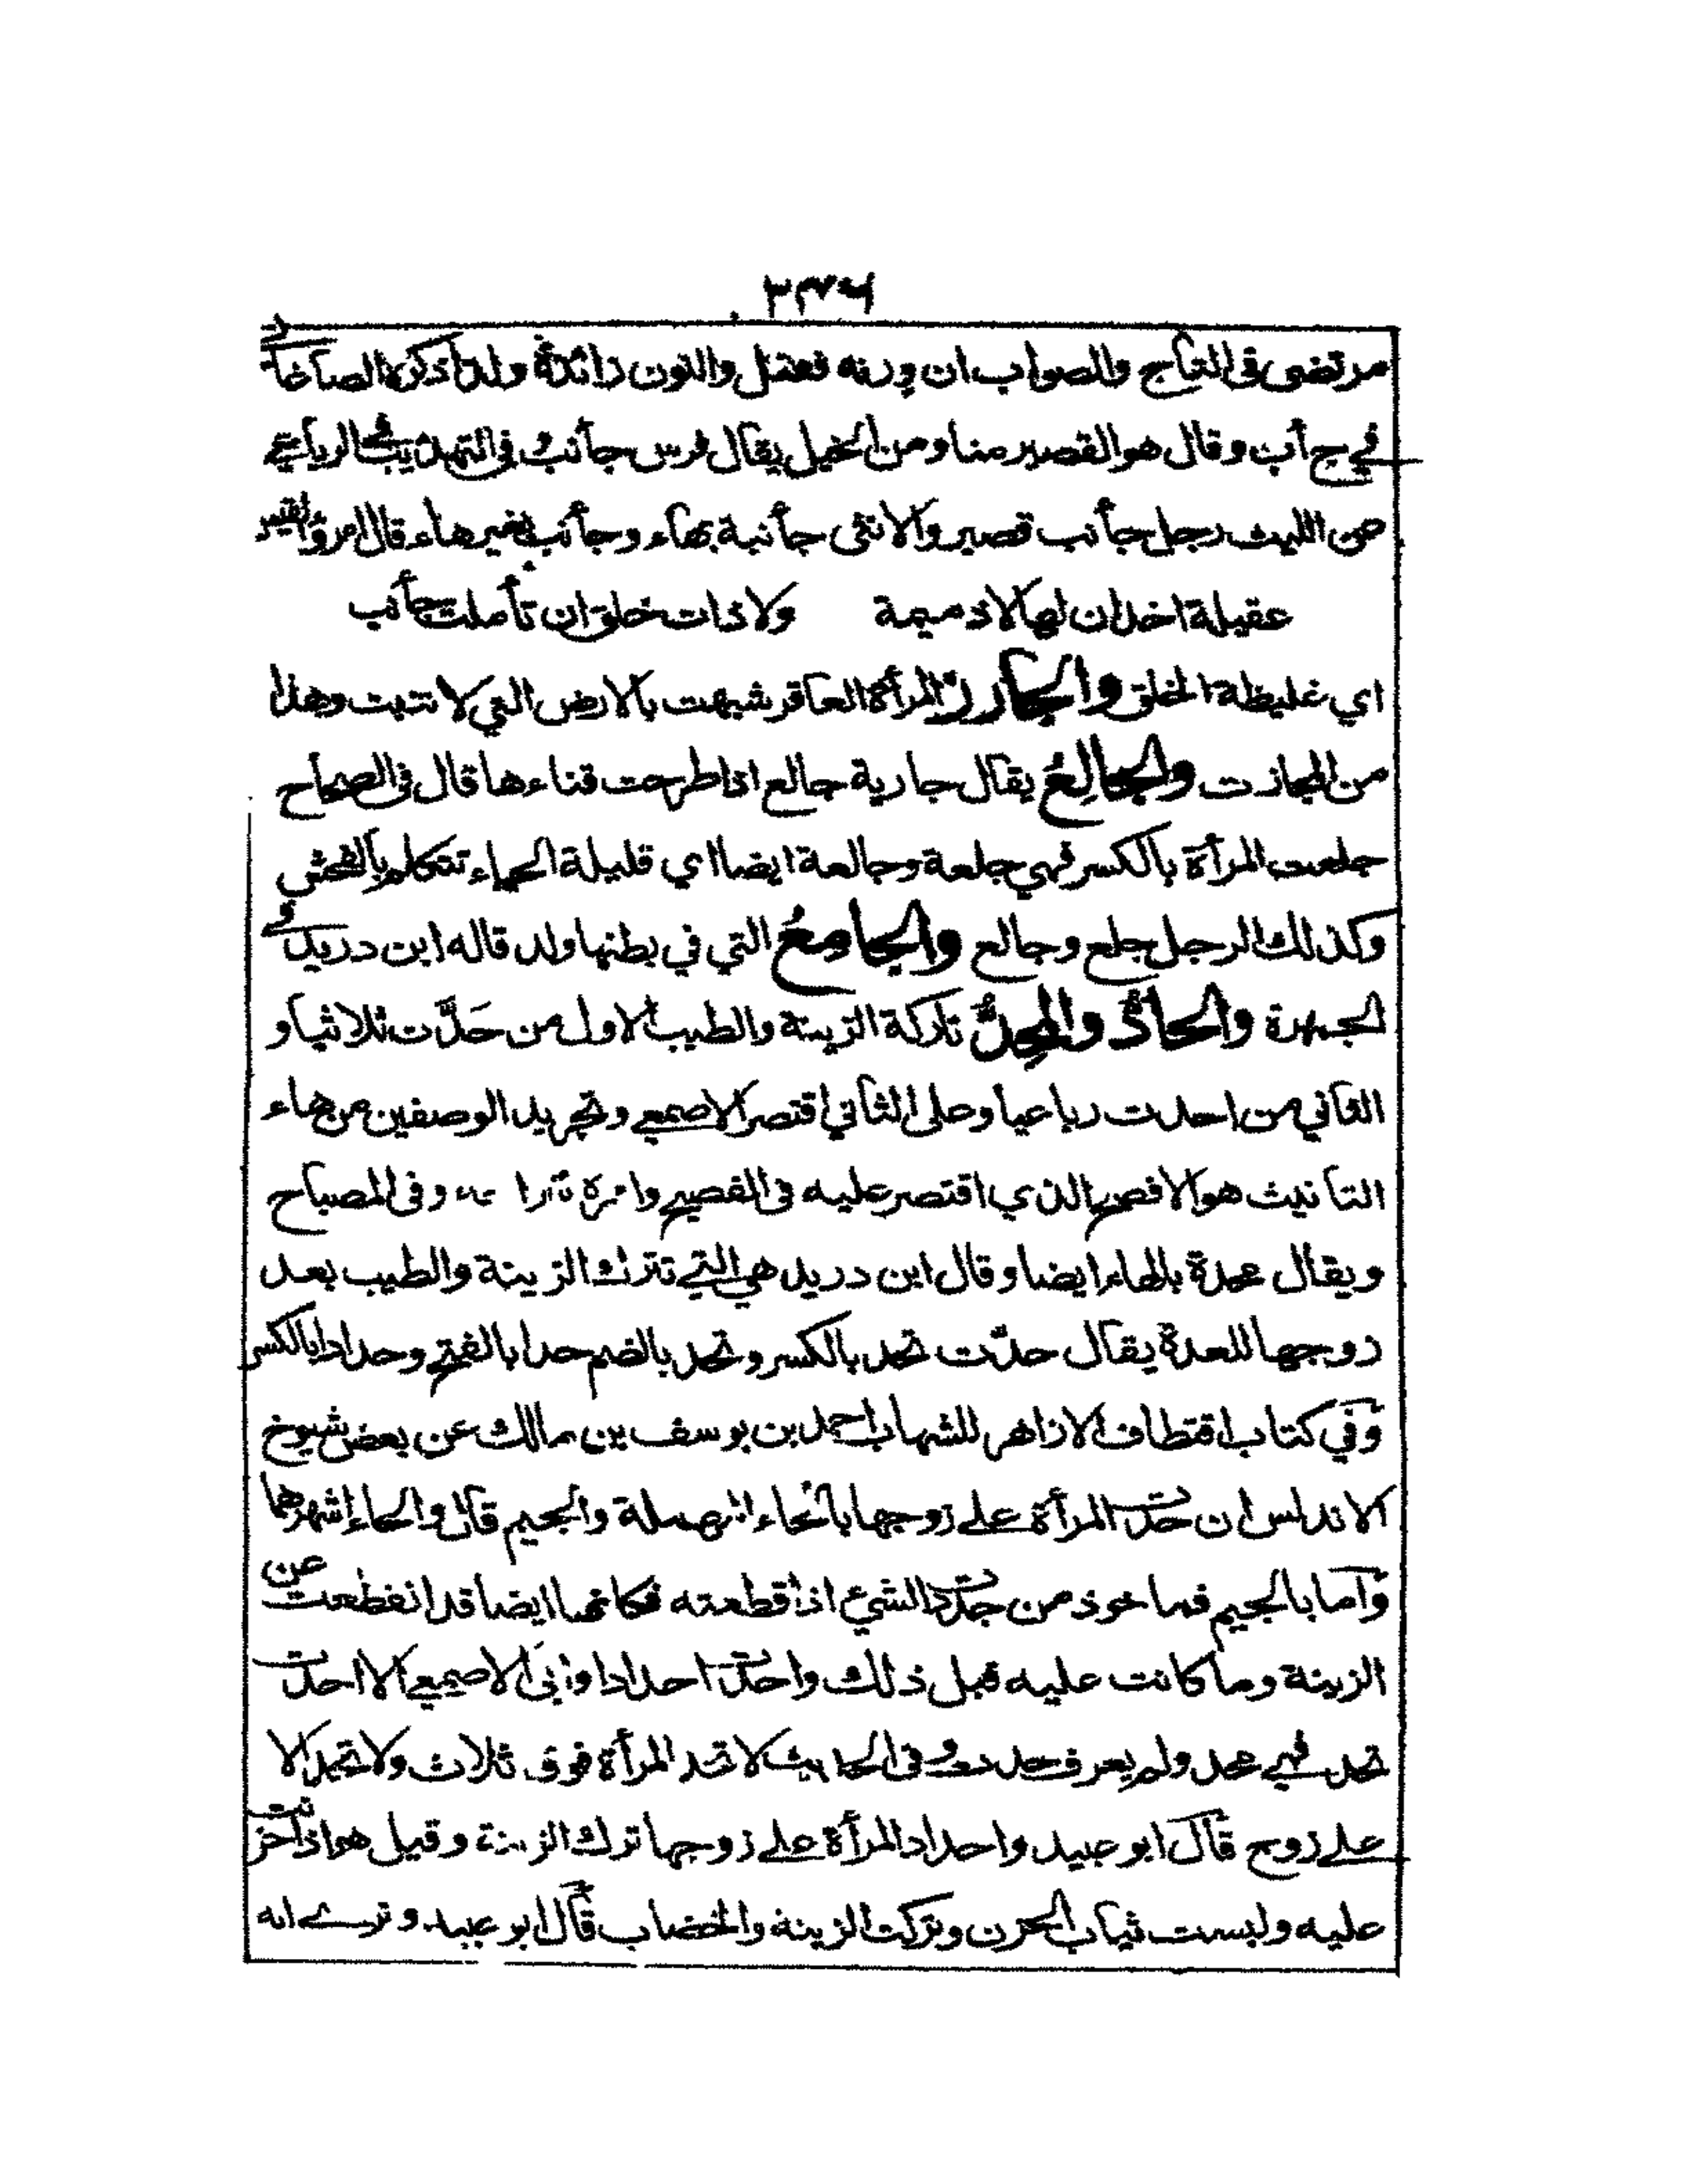 مرتضى فى التاج والصواب ان وزنه فعنل والنون زائدة ولذا ذكره الصاغانے
في ج أب وقال هو القصير منا ومن الخيل يقال فرس جأنب وفى التهذيب فى الرباعے
عن الليث رجل جأنب قصير والانثى جأنبة بهاء وجأنب بغير هاء قال امرؤ القيس
عقيلة اخدان لها لا ذميمة ولا ذات خلق ان تأملت جأنب
اي غليظة الخلق والجارز المرأة العاقر شبهت بالارض التي لا تنبت وهذا
من المجاز ت والجالِعُ يقال جارية جالع اذا طرحت قناعها قال فى الصحاح
جلعت المرأة بالكسر فهي جلعة وجالعة ايضا اي قليلة الحياء تتكلم بالفحش
وكذلك الرجل جلع وجالع والجامعُ التي في بطنها ولد قاله ابن دريد فے
الجمهرة والحادُّ والمحِدُّ تاركة الزينة والطيب الاول من حَدَّت ثلاثيا و
الثاني من احدت رباعيا وعلى الثاني اقتصر الاصمعے وتجريد الوصفين من هاء
التأنيث هو الافصح الذي اقتصر عليه فى الفصيح وفى المصباح
ويقال محدة بالهاء ايضا وقال ابن دريد هي التي تترك الزينة والطيب بعد
زوجها للعدة يقال حدّت تحد بالكسر وتحد بالضم حدا بالفتح وحدادا بالكسر
وفي كتاب اقتطاف الازاهر للشهاب احمد بن يوسف بن مالك عن بعض شيوخ
الاندلس ان حدّت المرأة علے زوجها بالحاء المهملة والجيم قال والحاء اشهرهما
واما بالجيم فماخوذ من جددت الشيء اذا قطعته فكانها ايضا قد انقطعت عن
الزينة وما كانت عليه قبل ذلك واحدّت احدادا وابى الاصمعے الا احدّت
تحد فهي محد ولم يعرف حدت وفى الحديث لا تحد المرأة فوق ثلاث ولا تحد الا
علے زوج قال ابو عبيد واحداد المرأة علے زوجها ترك الزينة وقيل هو اذا حزنت
عليه ولبست ثياب الحزن وتركت الزينة والخضاب قال ابو عبيد ونرے انه